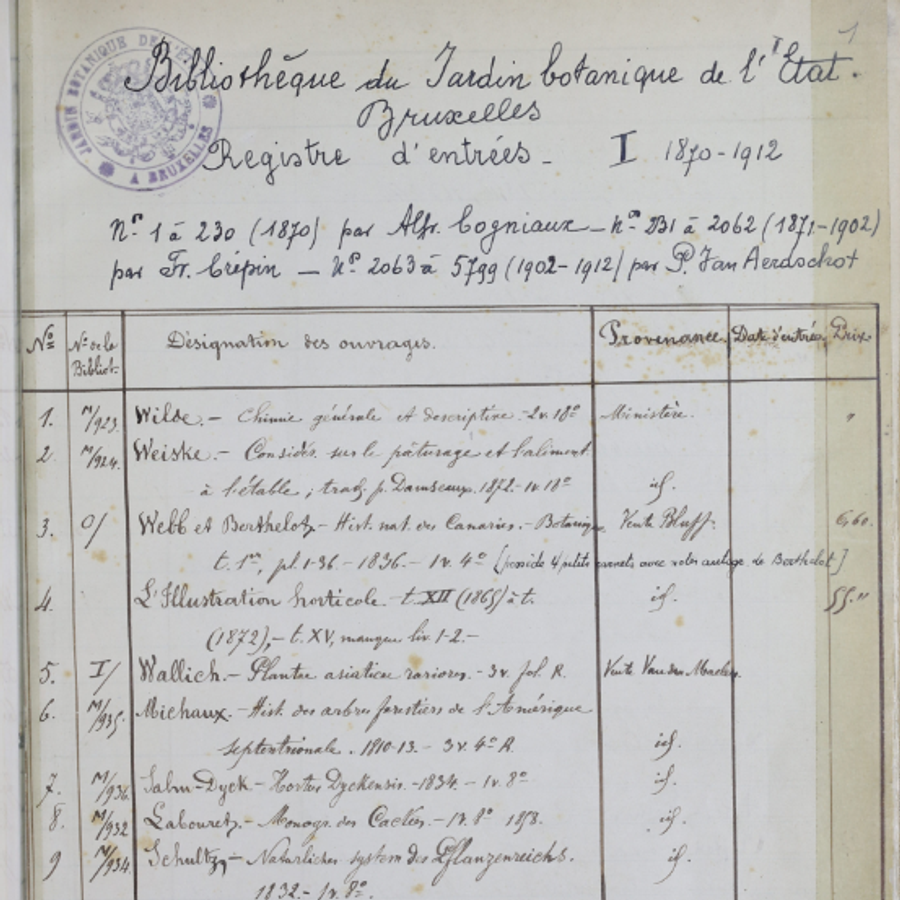 1
JARDIN BOTANIQUE DE L'ÉTAT
A BRUXELLES
Bibliothêque du Jardin botanique de l'Etat.
Bruxelles
Registre d'entrées - I 1870-1912
Nos 1 à 230 (1870) par Alfr. Cogniaux - nos 231 à 2062 (1871-1902)
par Fr. Crépin - Nos 2063 à 5799 (1902-1912) par P. Van Aerdschot
No No de la Bibliot. Désignation des ouvrages. Provenance. Date d'entrée Prix.
1. M/923. Wilde. - Chimie générale et descriptive - 2v. 18o Ministère. "
2. M/924. Weiske. - Considér. sur le pâturage et l'aliment.
à l'étable ; trad. p. Damseaux. 1872. - 1v. 18o id.
3. O/ Webb et Berthelot, - Hist. nat. des Canaries. - Botanique Vente 6,60.
t. 1er, pl. 1-36. - 1836. - 1v. 4o [possède 4 petits carnets avec notes autogr. de Berthelot]
4. L'Illustration horticole. - t. XII (1865) à t. id. 55."
(1872), - t. XV, manque liv. 1-2. -
5. I/ Wallich. - Plantae asiaticae rariores. - 3v. fol. R. Vente Van der Maelen.
6. M/935. Michaux. - Hist. des arbres forestiers de l'Amérique
septentrionale. 1810-13. - 3v. 4o R. id.
7. M/936. Salm-Dyck - Hortus Dyckensis. - 1834. - 1v. 8o id.
8. M/932 Labouret, - Monogr. des Cactées. - 1v. 8o 1858. id.
9 M/934. Schultz, - Natürliches system des Pflanzenreichs. id.
1832. - 1v. 8o.